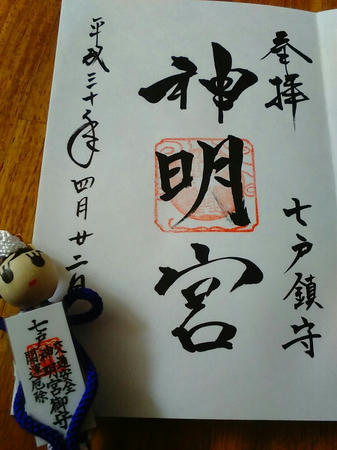 奉拝
七戸鎮守
神明宮
平成三十年四月廿二日
交通安全
七戸神明宮御守
開運厄除